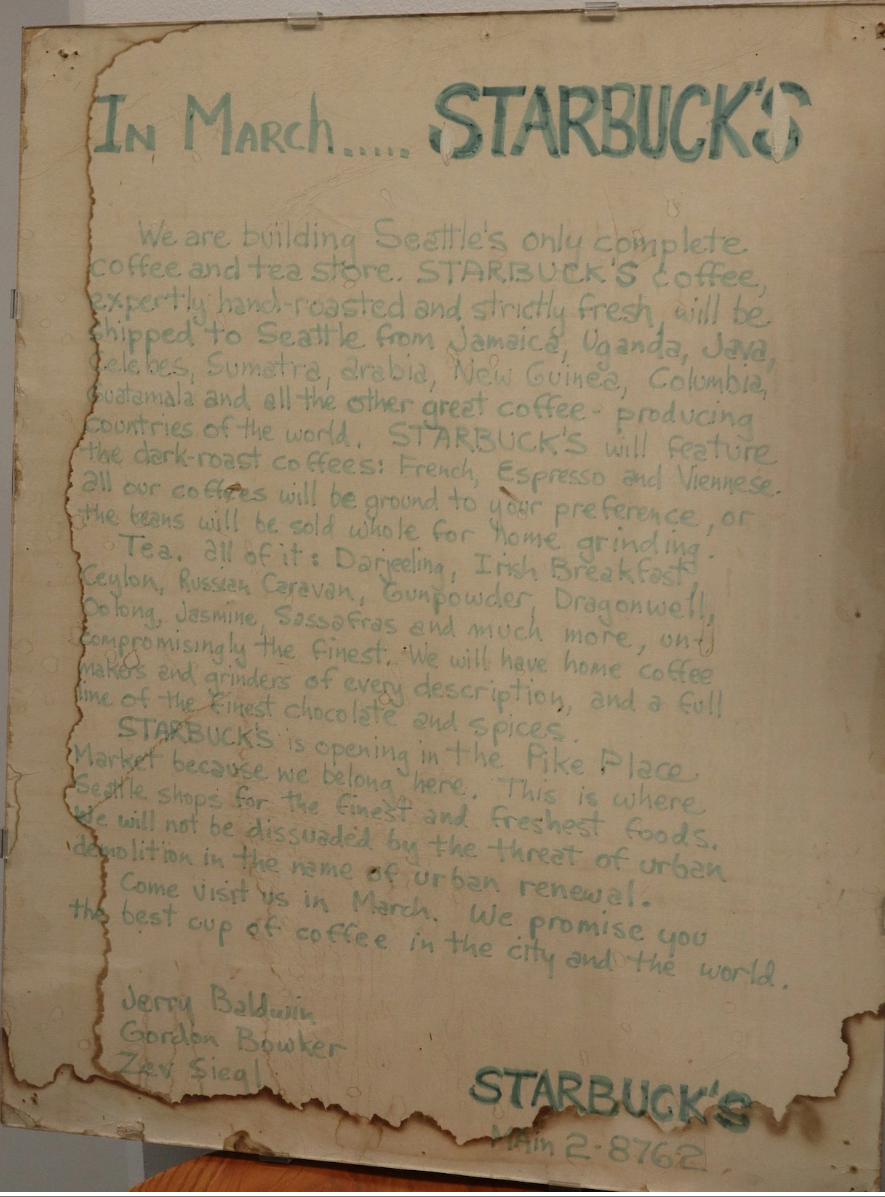 In March..... STARBUCK'S
We are building Seattle's only complete
coffee and tea store. STARBUCK'S coffee,
expertly hand-roasted and strictly fresh, will be
shipped to Seattle from Jamaica, Uganda, Java,
Celebes, Sumatra, arabia, New Guinea, Columbia,
Guatamala and all the other great coffee-producing
countries of the world. STARBUCK'S will feature
the dark-roast coffees: French, Espresso and Viennese.
all our coffees will be ground to your preference, or
the beans will be sold whole for home grinding.
Tea. all of it: Darjeeling, Irish Breakfast,
Ceylon, Russian Caravan, Gunpowder, Dragonwell,
Oolong, Jasmine, Sassafras and much more, un-
compromisingly the finest. We will have home coffee
makers and grinders of every description, and a full
line of the finest chocolate and spices.
STARBUCK'S is opening in the Pike Place
Market because we belong here. This is where
Seattle shops for the finest and freshest foods.
We will not be dissuaded by the threat of urban
demolition in the name of urban renewal.
Come visit us in March. We promise you
the best cup of coffee in the city and the world.
Jerry Baldwin
Gordon Bowker
Zev Siegl
STARBUCK'S
MAin 2-8762